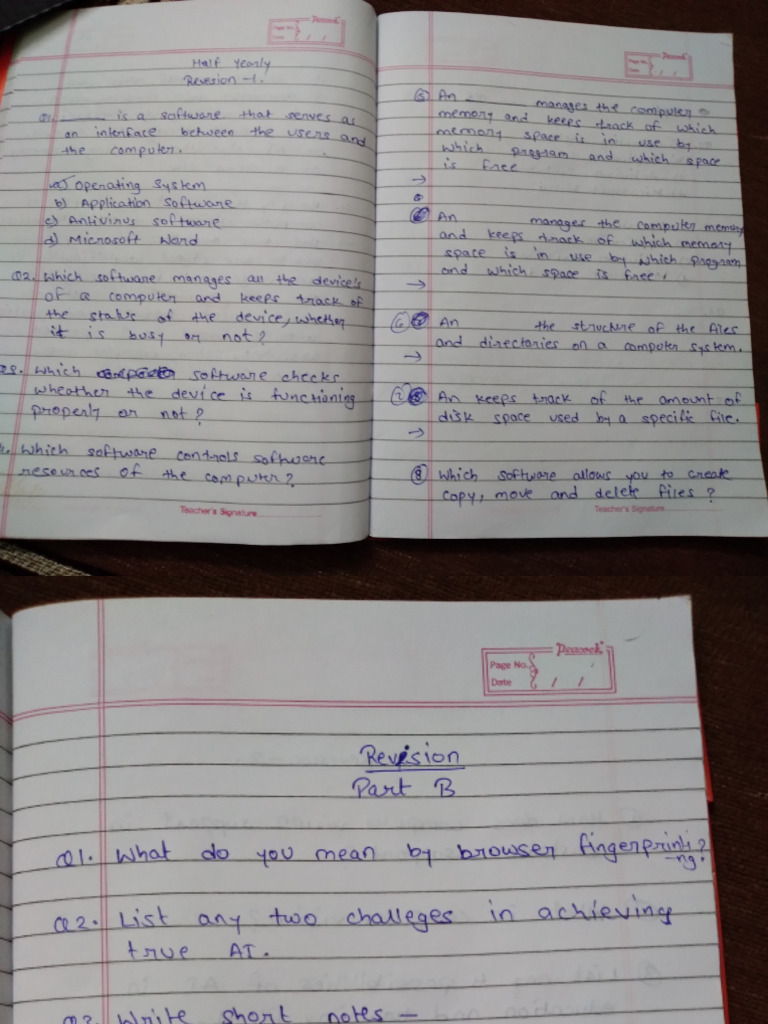 Peacock
Page No.
Date
Half Yearly
Revesion -1.
Q1. ______ is a software that serves as
an interface between the users and
the computer.
a) Operating System
b) Application Software
c) Antivirus software
d) Microsoft Word
Q2. Which software manages all the device's
of a computer and keeps track of
the status of the device, whether
it is busy or not?
Which software checks
wheather the device is functioning
properly or not?
Which software controls software
resources of the computer?
Teacher's Signature
Peacock
Page No.
Date
5 An ______ manages the computer
memory and keeps track of which
memory space is in use by
which program and which space
is free
→
6 An manages the computer memory
and keeps track of which memory
space is in use by which program
and which space is free.
→
6 An the structure of the files
and directories on a computer system.
→
7 An keeps track of the amount of
disk space used by a specific file.
→
8 Which software allows you to create
copy, move and delete files?
Teacher's Signature
Peacock
Page No.
Date
Revision
Part B
Q1. What do you mean by browser fingerprinti?
-ng.
Q2. List any two challeges in achieving
true AI.
Q3. Write short notes —